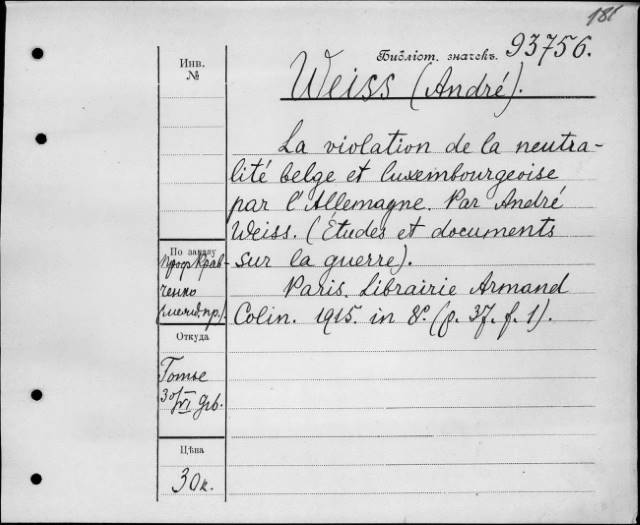 181
Библіот. значекъ. 93756.
Инв.
№
Weiss (André).
La violation de la neutra-
lité belge et luxembourgeoise
par l'Allemagne. Par André
Weiss. (Études et documents
sur la guerre).
Paris. Librairie Armand
Colin. 1915. in 8º. (p. 37. f. 1).
По заказу
проф. Крав-
ченко
(межд. пр.).
Откуда
Готье
30/VI
Цѣна
30 к.